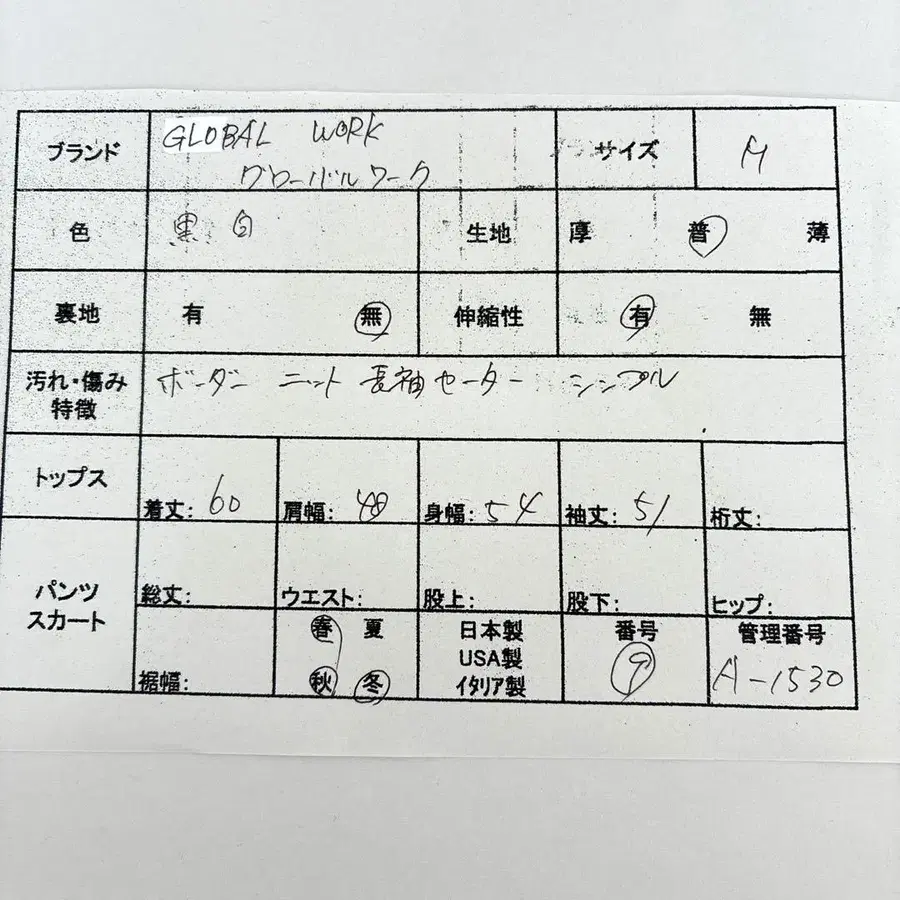 ブランド GLOBAL WORK サイズ M
グローバルワーク
色 黒 白 生地 厚 普 薄
裏地 有 無 伸縮性 有 無
汚れ・傷み ボーダー ニット 長袖セーター シンプル
特徴
トップス 着丈: 60 肩幅: 40 身幅: 54 袖丈: 51 裄丈:
パンツ
スカート
総丈: ウエスト: 股上: 股下: ヒップ:
裾幅:
春 夏
秋 冬
日本製
USA製
イタリア製
番号
管理番号
A-1530